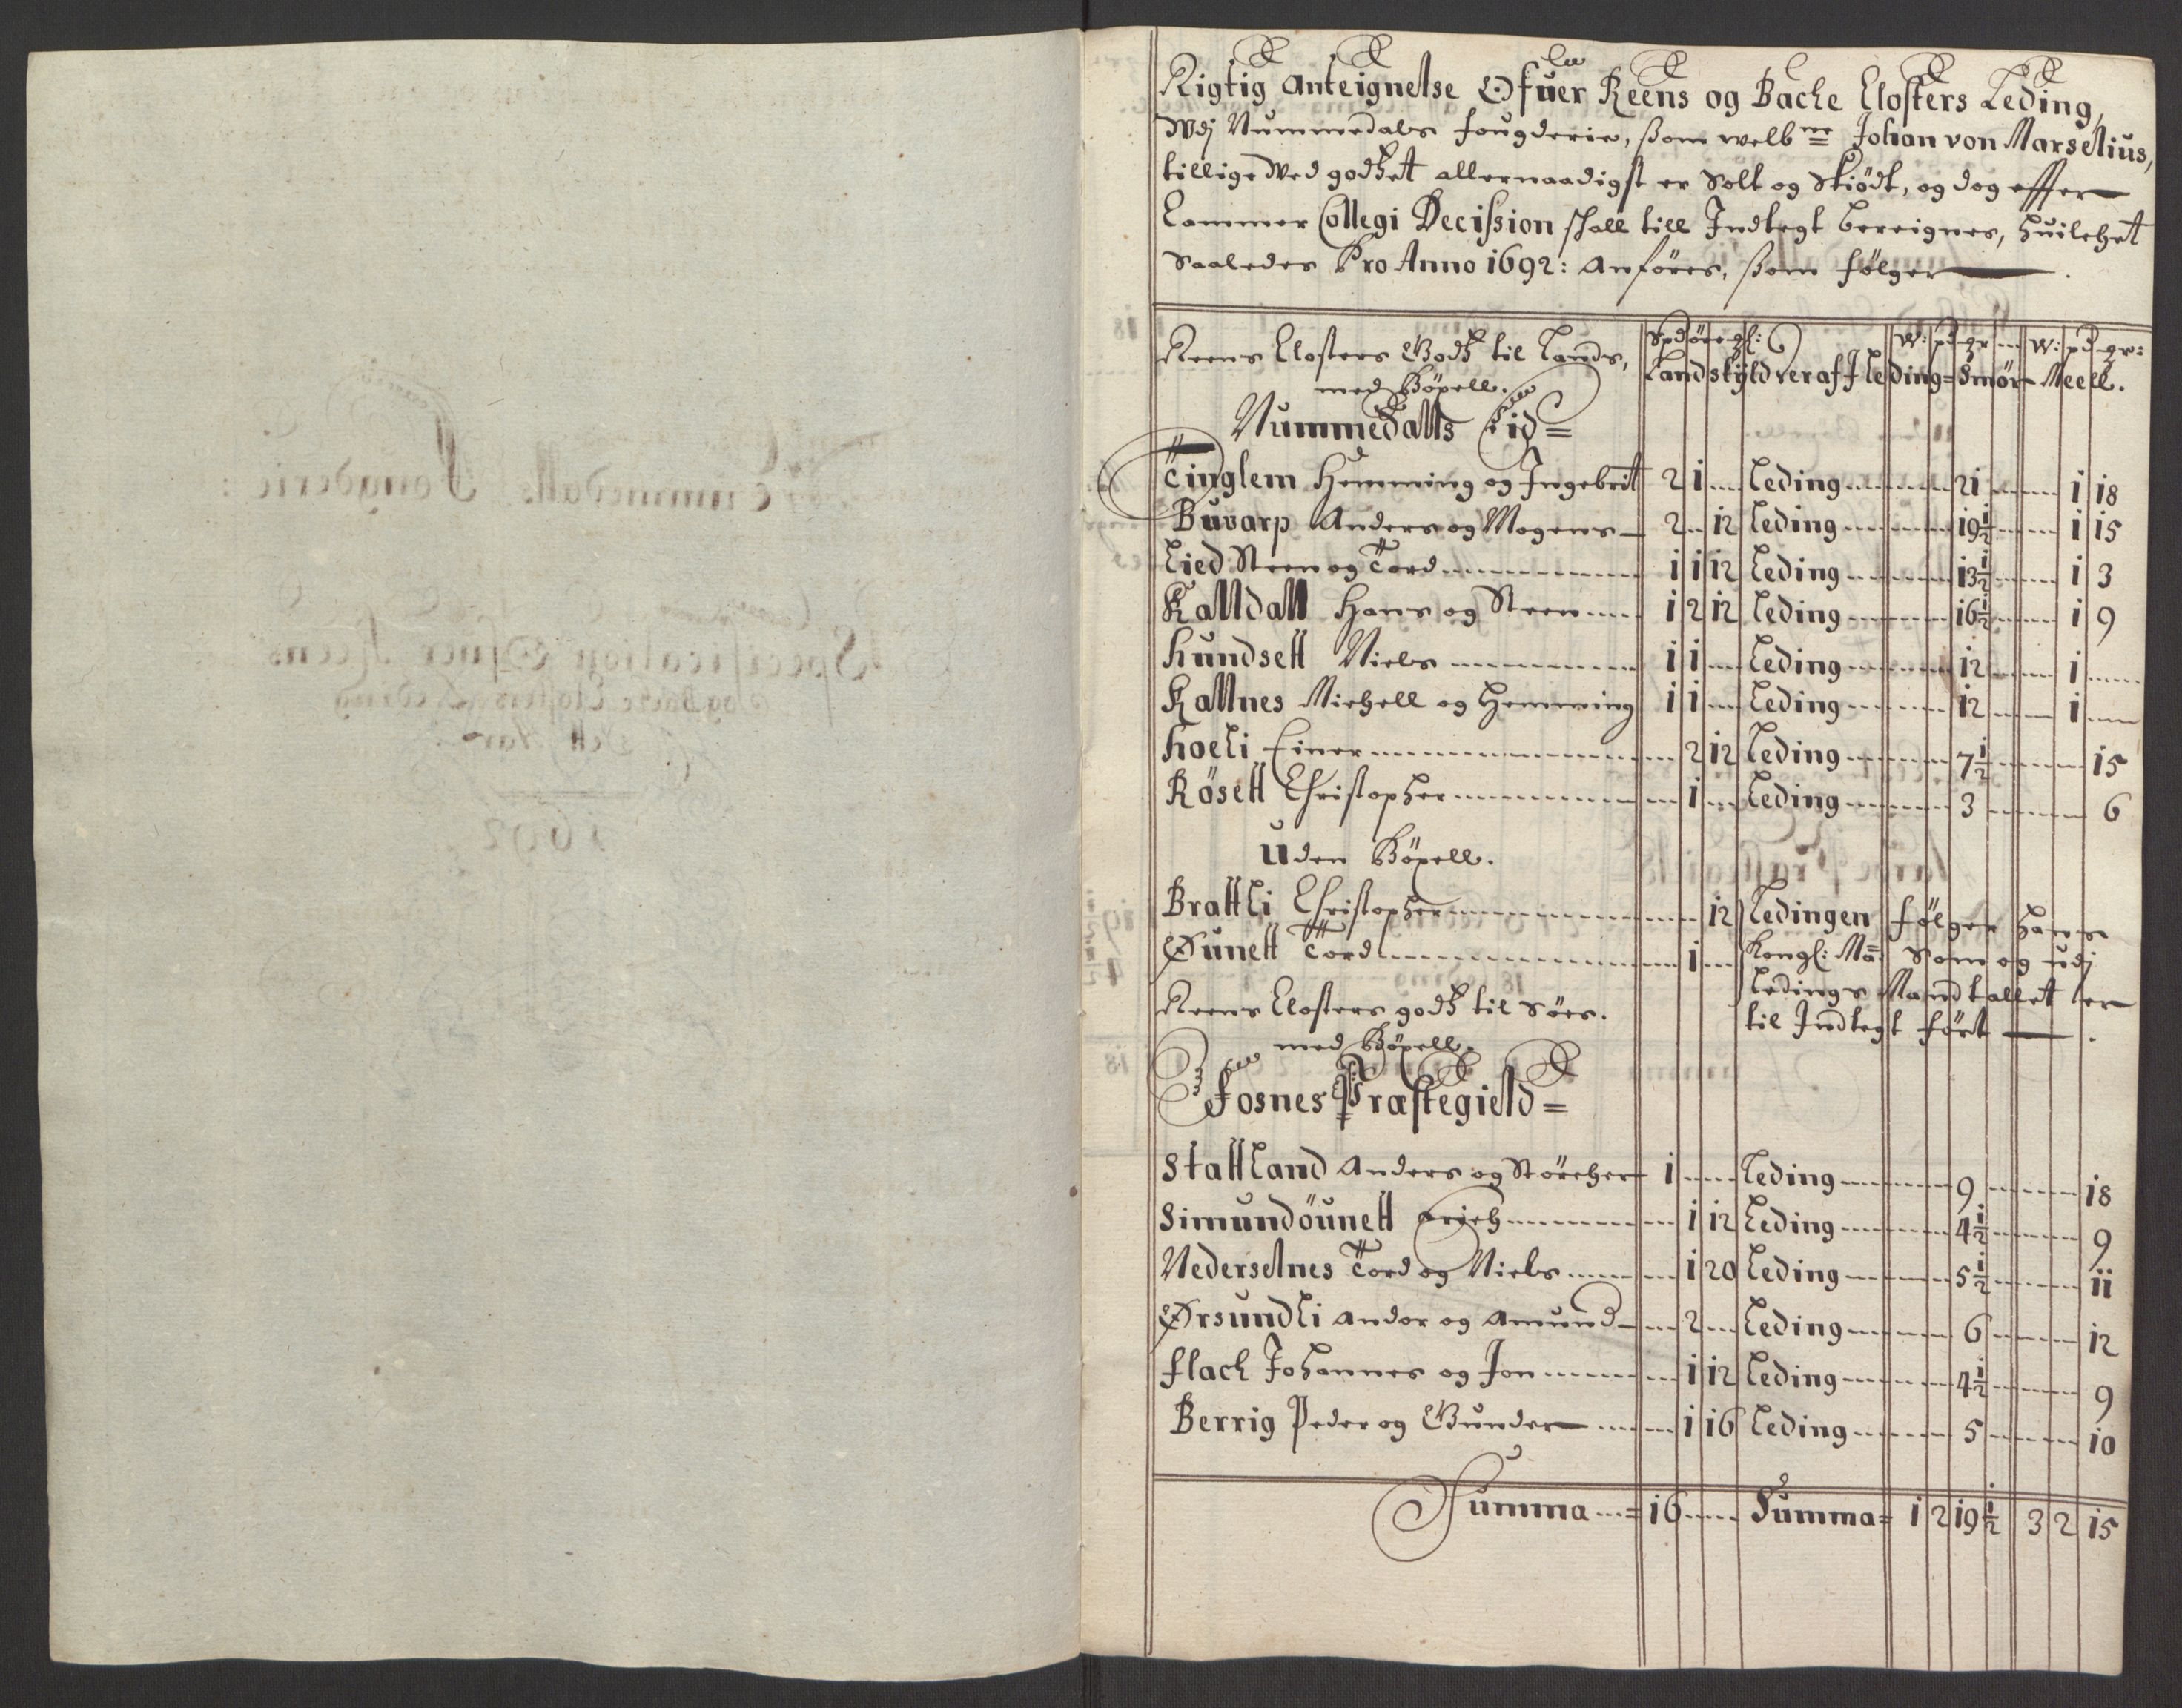 Rigtig Anteignelse Ofuer Reens og Backe Closters Leding,
Wdj Nummedals fougderie, som welb ne Johan von Marselius,
tillige Med godset allernaadigst er Solt og Skiödt, og dog effter
Cammer Collegi Decission schall till Indtegt bereignes, huilchet
Saaledes Pro Anno 1692: anføres, som følger
Reens Closters Godz til Lands,
med Böxell.
Spd öre gl:
Landskyld Heraf I Leding= Smör Meell.
W: pd gr W: pd gr:
Nummedalls Eid=
Tinglem Hemming og Ingebrit 2 1 Leding 21 1 18
Buvarp Anders og Mogens 2 12 Leding 19½ 1 15
Lied Steen og Tord 1 1 12 Leding 13½ 1 3
Kalldall Hans og Steen 1 2 12 Leding 16½ 1 9
Hundsett Niels 1 1 Leding 12 1
Kallnes Michell og Hemming 1 1 Leding 12 1
Hoeli Einer 2 12 Leding 7½ 15
Rösett Christopher 1 Leding 3 6
Uden Böxell.
Brattli Christopher 12 Ledingen følger hans
Øunett Tord 1 Kongl: Ma: Som og udj
Ledings Mandtallet er
Reens Closters godz til Söes.
til Indtegt ført
med Böxell.
Fosnes Præstegield=
Stattland Anders og Störcher 1 Leding 9 18
Simundöunett Erich 1 12 Leding 4½ 9
Nederselnes Tord og Niels 1 20 Leding 5½ 11
Ørsundli Andor og Amund 2 Leding 6 12
Flach Johannes og Jon 1 12 Leding 4½ 9
Berrig Peder og Gunder 1 16 Leding 5 10
Summa = 16 Summa= 1 2 19½ 3 2 15